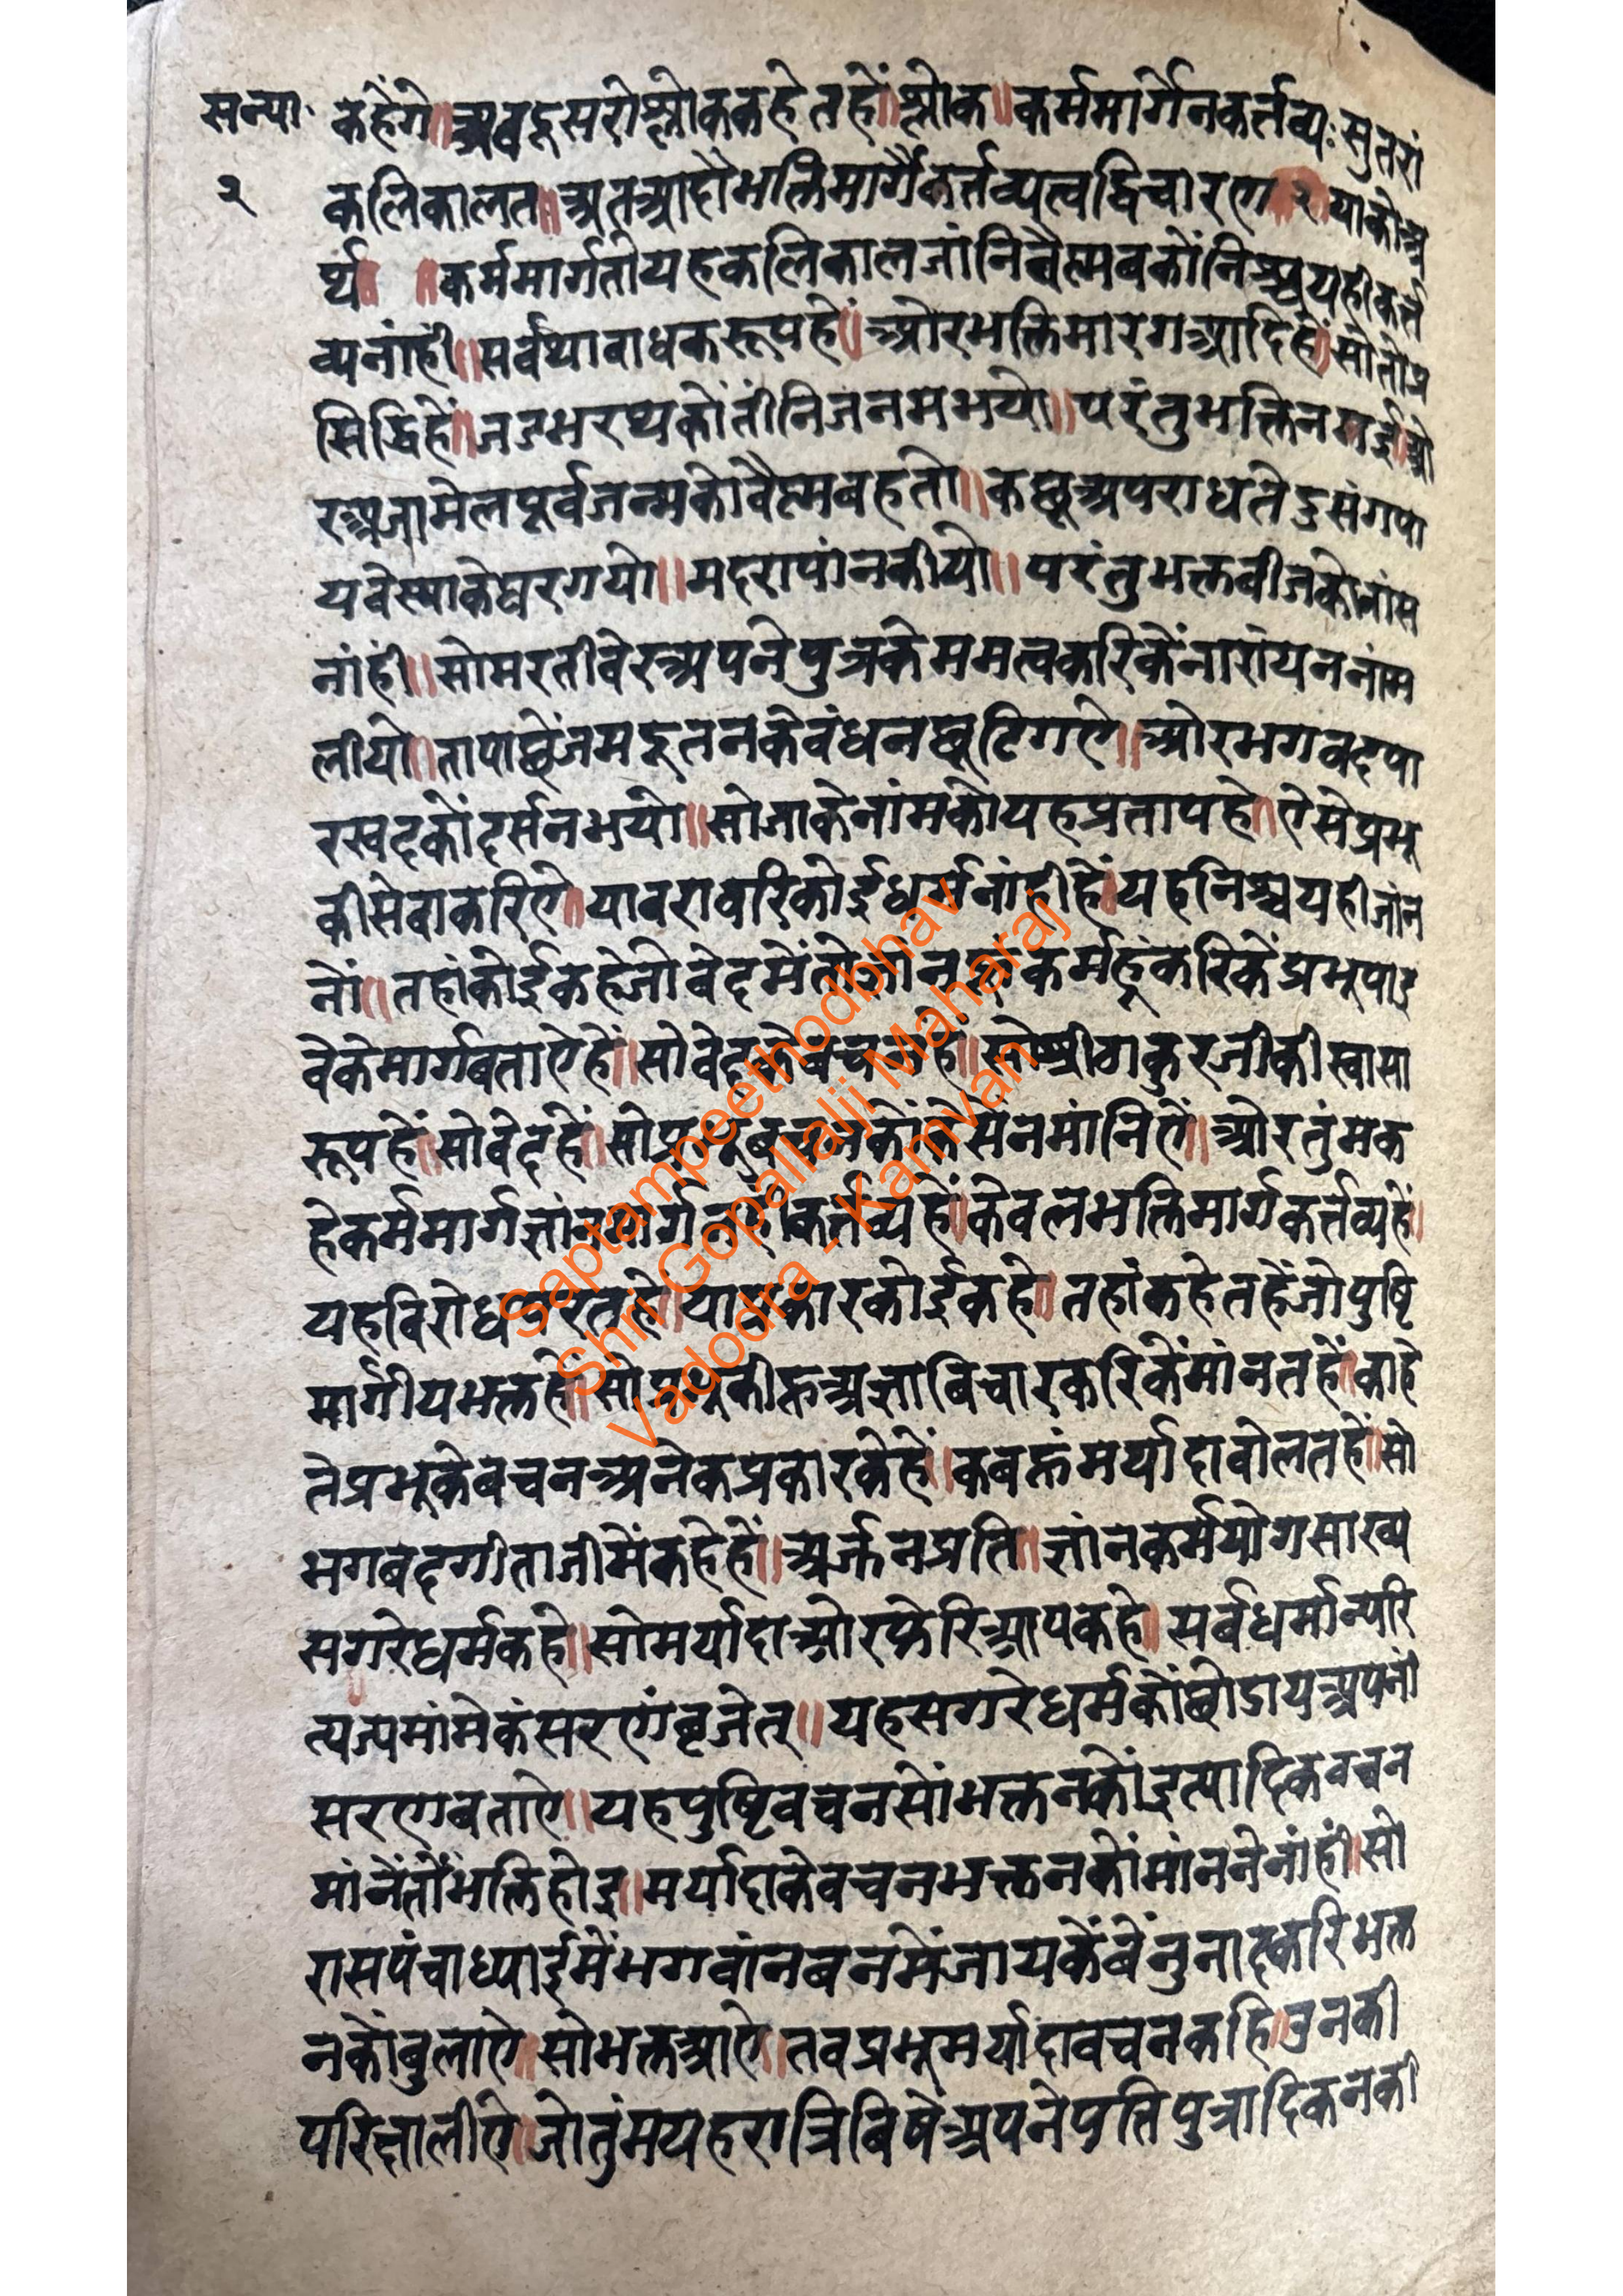 सन्या॰ कहेंगे॥ अब दूसरो श्लोक कहेत हें॥ श्लोक॥ कर्ममार्गे न कर्त्तव्यः सुतरां
२ कलिकालत॥ अत आदौ भक्तिमार्गे कर्त्तव्यत्वद्विचारण २ याको अ
र्थ॥ ॥ कर्ममार्ग तो यह कलिकाल जांनि वैष्णव कों निश्चय ही कर्त्त
व्य नांही॥ सर्वथा बाधक रूप हे॥ ओर भक्ति मारग आदि हें॥ सो तो प्र
सिद्धि हें॥ जडभरथ कों तीनि जनम भयो॥ परंतु भक्ति न गई॥ ओ
र अजामेल पूर्व जन्म को वैष्णव हतो॥ कछू अपराध ते दुसंग पा
य वेस्या के घर गयो॥ मदरा पांन कीयो॥ परंतु भक्त बीज को नांस
नांही॥ सो मरती वेर अपने पुत्र के ममत्व करिकें नारांयन नांम
लीयो॥ ता पाछें जमदूतन के बंधन छूटि गऐ॥ ओर भगवद पा
रखद कों दर्सन भयो॥ सो जाके नांम को यह प्रताप हे॥ ऐसे प्रभू
की सेवा करिऐ॥ या बराबरि कोई धर्म नांही हें॥ यह निश्चय ही जांन
नों॥ तहां कोई कहे जो वेद में तो ज्ञांन कर्म हूं करिकें प्रभू पाइ
वे के मार्ग बताऐ हें॥ सो वेद के बचन हें॥ सो श्री ठाकुरजी की स्वासा
रूप हें॥ सो वेद हें॥ सो प्रभू बचन कों केसे न मांनिऐं॥ ओर तुंम क
हे कर्म मार्ग ज्ञांन मार्ग नहीं कर्त्तव्य हें॥ केवल भक्ति मार्ग कर्त्तव्य हें॥
यह विरोध परत हे॥ या प्रकार कोई कहे॥ तहां कहेत हें जो पुष्टि
मार्गीय भक्त हें॥ सो प्रभू की अज्ञा बिचार करिकें मांनत हें॥ काहे
ते प्रभू के बचन अनेक प्रकार के हें॥ कबहूं मर्यादा बोलत हें॥ सो
भगबद गीताजी में कहे हें॥ अर्जुन प्रति॥ ज्ञांन कर्म योग सांख्य
सगरे धर्म कहे॥ सो मर्यादा ओर फेरि आप कहे॥ सर्बधर्मान्परि
त्यज्य मांमेकं सरणं बृजेत्॥ यह सगरे धर्म कों छोडाय अपनी
सरण बताऐ॥ यह पुष्टि वचन सों भक्तन कों इत्यादिक वचन
मांनें तों भक्ति होइ॥ मर्यादा के वचन भक्तन कों मांनने नांहीं॥ सो
रासपंचाध्याई में भगवांन बन में जाय कें बेंनुनाद करि भक्त
न कों बुलाऐ॥ सो भक्त आऐ॥ तव प्रभू मर्यादा वचन कहि॥ उनकी
परिक्षा लीऐ॥ जो तुंम यह रात्रि बिषें अपने पति पुत्रादिकन की
Saptampeethodbhav
Shri Gopallalji Maharaj
Vadodra - Kamvan